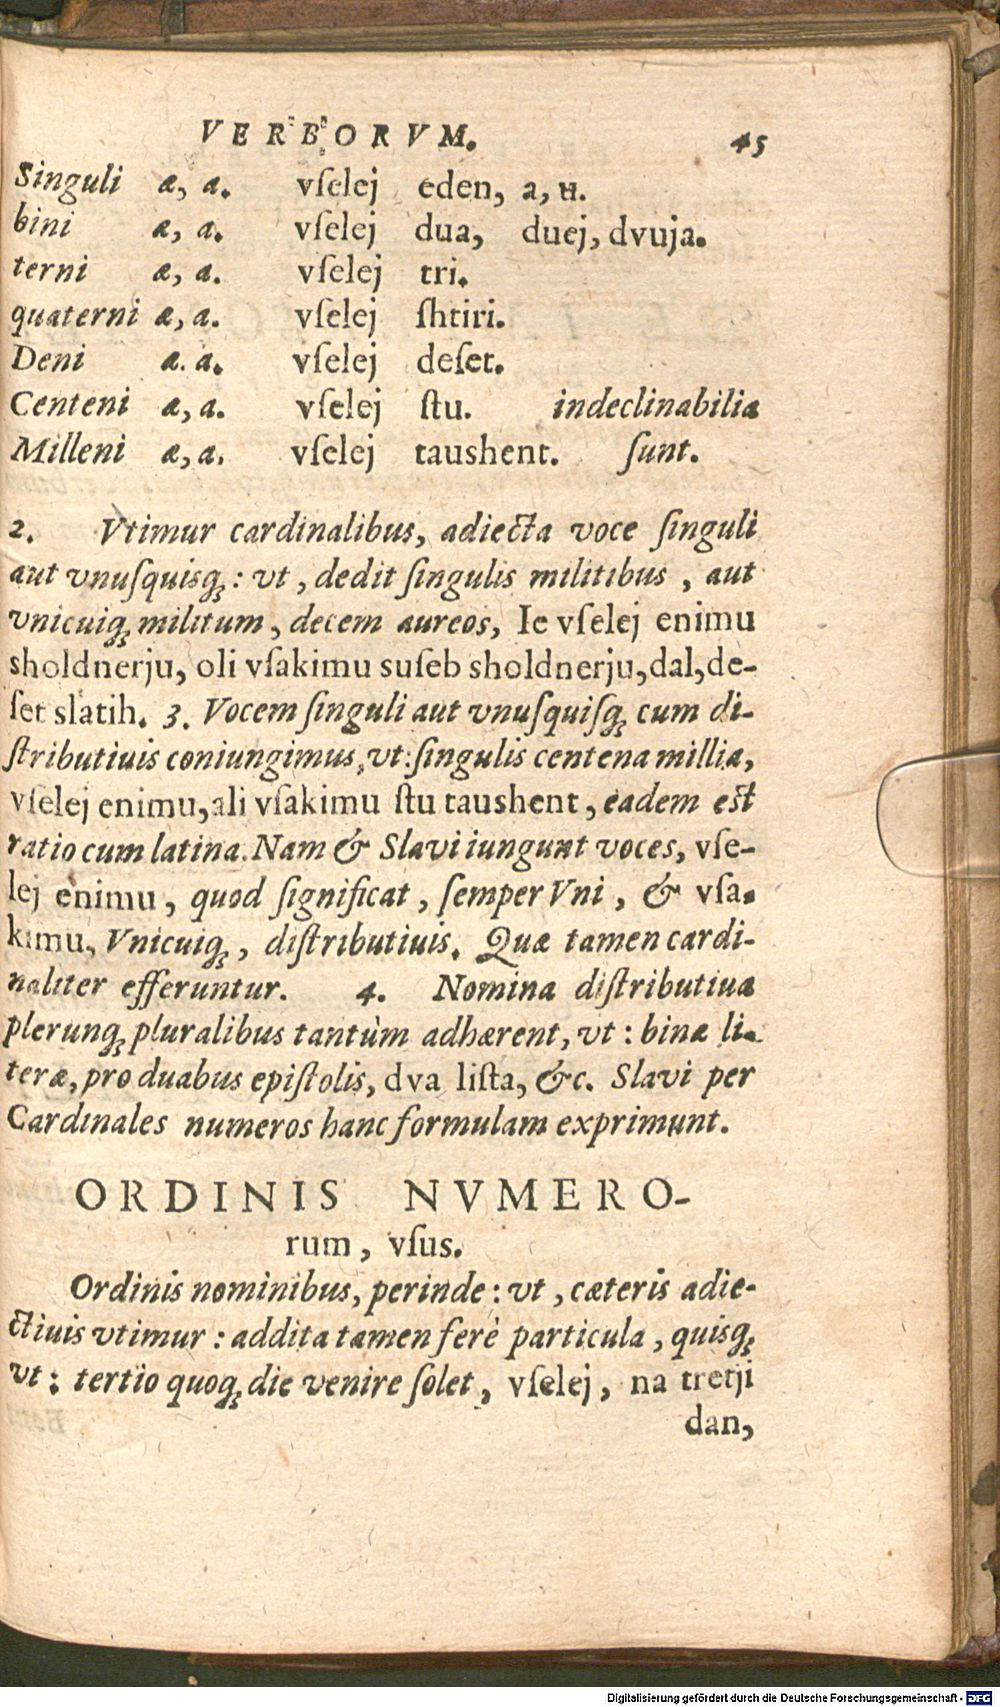 VERBORVM. 45
Singuli æ, a. vſelej eden, a, u.
bini æ, a. vſelej dua, duej, dvuja.
terni æ, a. vſelej tri.
quaterni æ, a. vſelej ſhtiri.
Deni æ. a. vſelej deſet.
Centeni æ, a. vſelej ſtu. indeclinabilia
Milleni æ, a. vſelej taushent. ſunt.
2. Vtimur cardinalibus, adiecta voce ſinguli
aut vnuſquisq́ꝫ: vt, dedit ſingulis militibus, aut
vnicuiq́ꝫ militum, decem aureos, Ie vſelej enimu
sholdnerju, oli vſakimu suſeb sholdnerju, dal, de-
ſet slatih. 3. Vocem ſinguli aut vnuſquiſq́ꝫ cum di-
ſtributiuis coniungimus, vt: ſingulis centena millia,
vſelej enimu, ali vſakimu ſtu taushent, eadem est
ratio cum latina. Nam & Slavi iungunt voces, vſe-
lej enimu, quod ſignificat, ſemper Vni, & vſa-
kimu, Vnicuiq́ꝫ, diſtributiuis. Quæ tamen cardi-
naliter efferuntur. 4. Nomina diſtributiua
plerunq́ꝫ pluralibus tantùm adhærent, vt: binæ li-
teræ, pro duabus epiſtolis, dva liſta, &c. Slavi per
Cardinales numeros hanc formulam exprimunt.
ORDINIS NVMERO-
rum, vſus.
Ordinis nominibus, perinde: vt, cæteris adie-
ctiuis vtimur: addita tamen ferè particula, quisq́ꝫ
vt: tertio quoq́ꝫ die venire ſolet, vſelej, na tretji
dan,
Digitalisierung gefördert durch die Deutsche Forschungsgemeinschaft - DFG